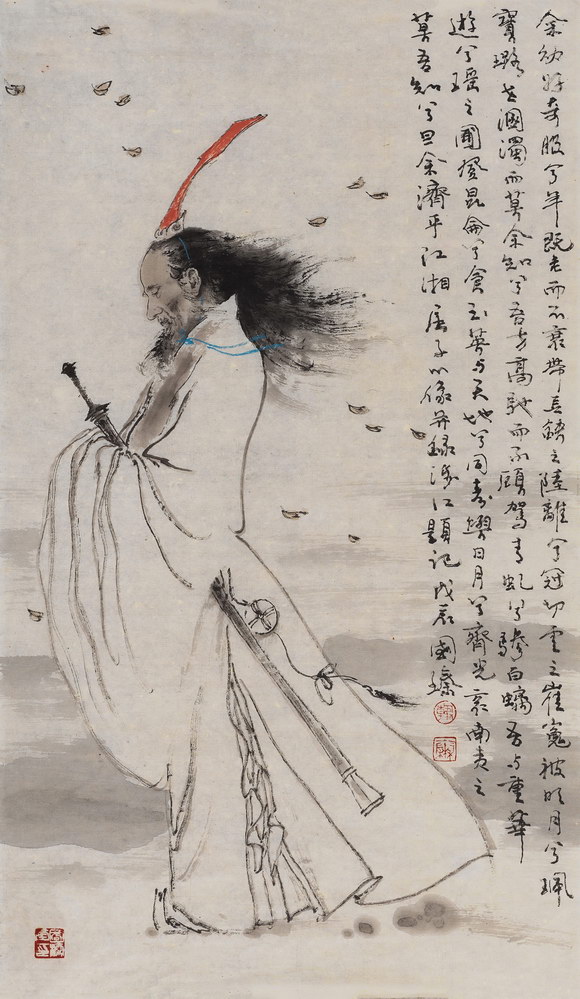 余幼好奇服兮年既老而不衰帶長鋏之陸離兮冠切雲之崔嵬被明月兮珮
寶璐世溷濁而莫余知兮吾方高馳而不顧駕青虬兮驂白螭吾与重華
遊兮瑶之圃登昆侖兮食玉英与天地兮同壽與日月兮齊光哀南夷之
莫吾知兮旦余濟乎江湘屈子小像并録涉江題記戊辰國臻